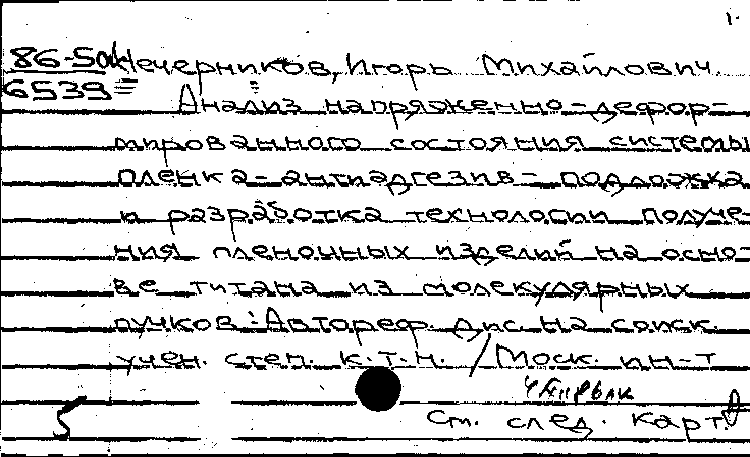 1.
86-5од Чечерников, Игорь Михайлович.
6539
Анализ напряженно-дефор-
мированного состояния системы
пленка-антиадгезив-подложка
и разработка технологии получе-
ния пленочных изделий на осно-
ве титана из молекулярных
пучков: Автореф. дис. на соиск.
учен. степ. к.т.н. / Моск. ин-т
См. след. карт.
5